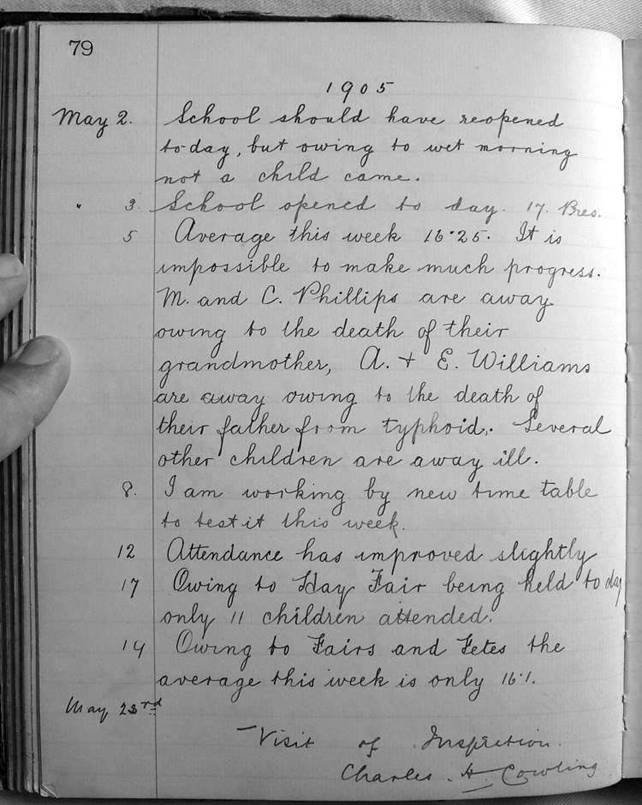 79
1905
May 2. School should have reopened
to-day, but owing to wet morning
not a child came.
" 3 School opened to day. 17. Pres.
5 Average this week 16·25. It is
impossible to make much progress.
M. and C. Phillips are away
owing to the death of their
grandmother, A. + E. Williams
are away owing to the death of
their father from typhoid. Several
other children are away ill.
8. I am working by new time table
to test it this week.
12 Attendance has improved slightly
17 Owing to Hay Fair being held to day
only 11 children attended.
19 Owing to Fairs and Fetes the
average this week is only 16·1.
May 23rd
Visit of Inspection.
Charles H Cowling